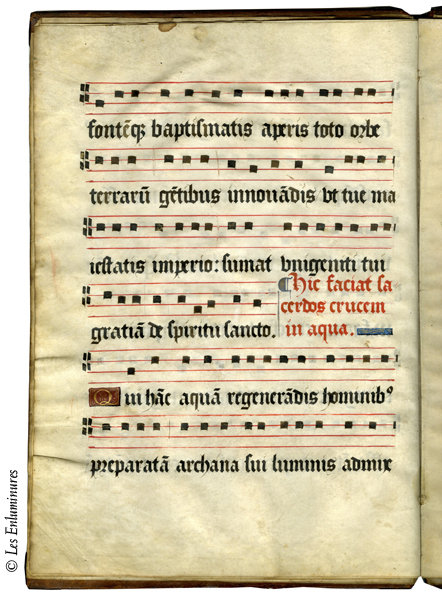 fontēqꝫ baptismatis aperis toto orbe
terrarū gētibus innouādis vt tue ma
iestatis imperio: sumat vnigeniti tui
gratiā de spiritu sancto.
¶ hic faciat sa
cerdos crucem
in aqua.
Qui hāc aquā regenerādis hominibꝰ
preparatā archana sui luminis admix
© Les Enluminures